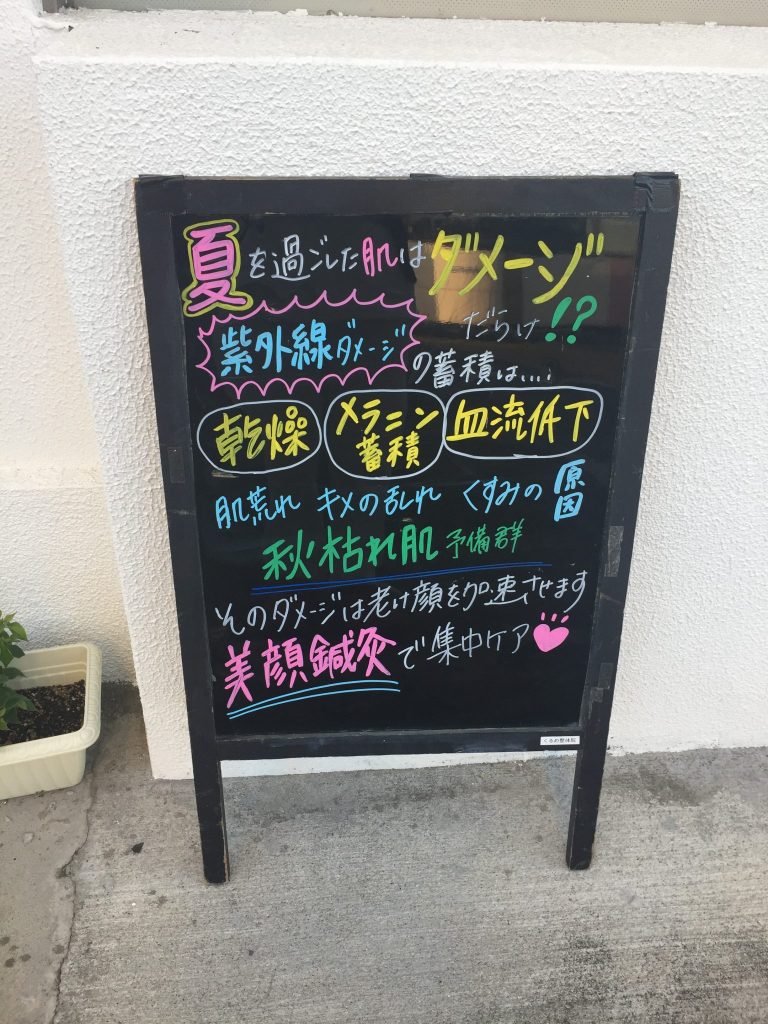 夏を過ごした肌はダメージ
だらけ!?
紫外線ダメージの蓄積は....
乾燥 メラニン蓄積 血流低下
肌荒れ キメの乱れ くすみの原因
秋枯れ肌予備群
そのダメージは老け顔を加速させます
美顔鍼灸で集中ケア